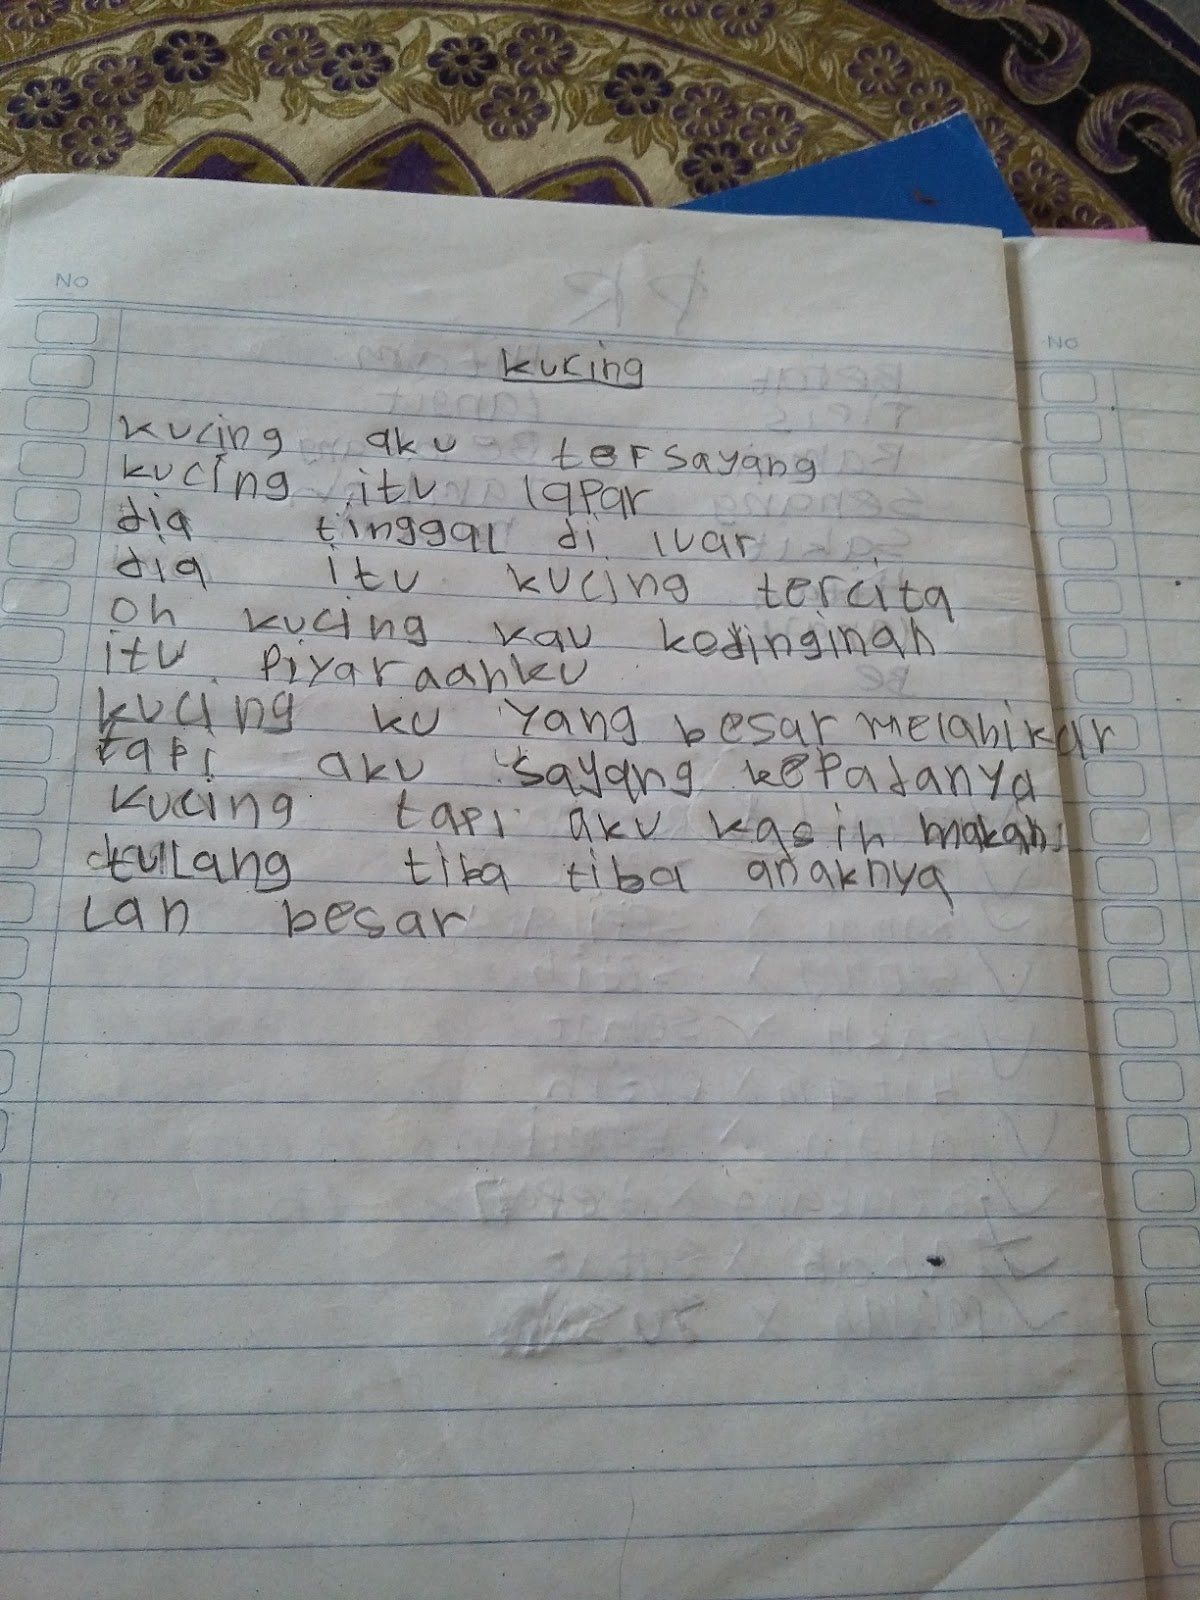 NO
NO
PR
kucing
kucing aku tersayang
kucing itu lapar
dia tinggal di luar
dia itu kucing tercita
oh kucing kau kedinginan
itu piyaraanku
kucing ku yang besar melahikar
tapi aku sayang kepadanya
kucing tapi aku kasih makan
tulang tiba tiba anaknya
lan besar